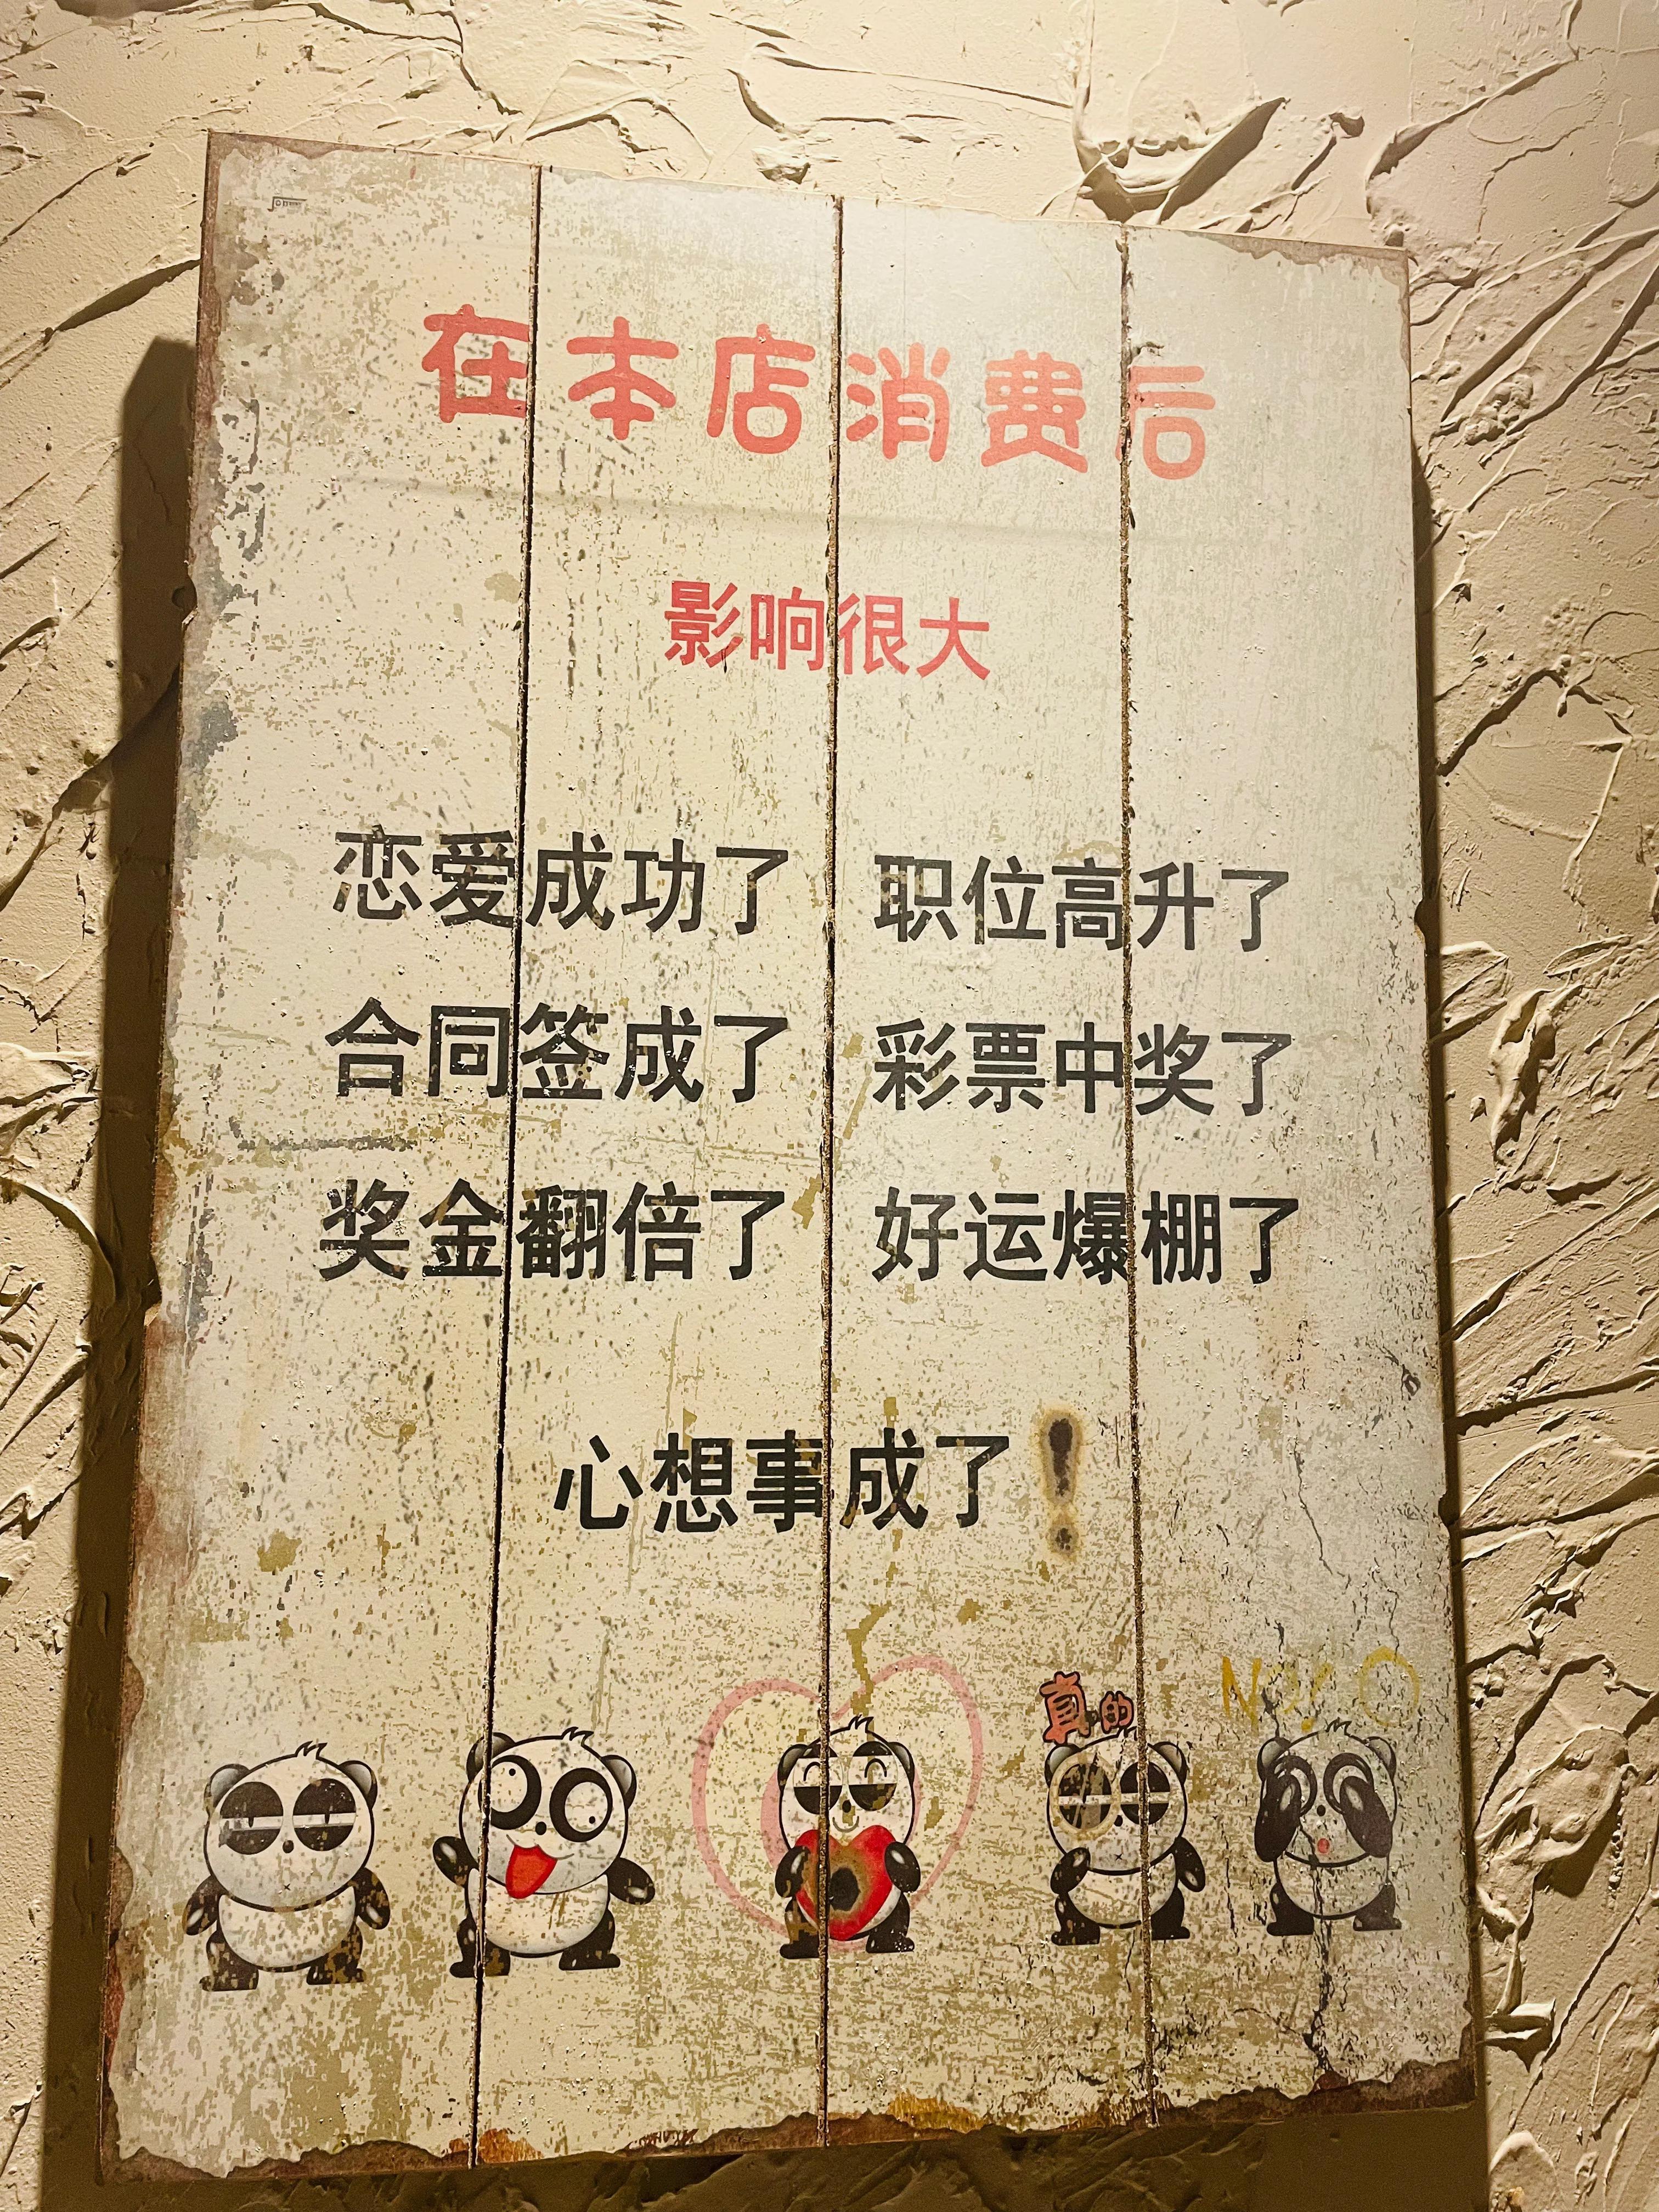 在本店消费后
影响很大
恋爱成功了 职位高升了
合同签成了 彩票中奖了
奖金翻倍了 好运爆棚了
心想事成了！
真的